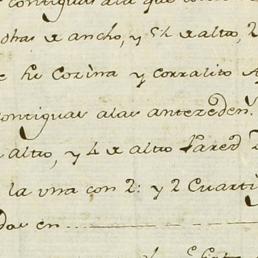 contiguas ala que
dhas de ancho, y 5½ de alto, 2
e hi Cozina y corralito
contiguas alas anteceden.
alto, y 4 de alto Pared 2
la vna con 2: y 2 Cuarti
das en